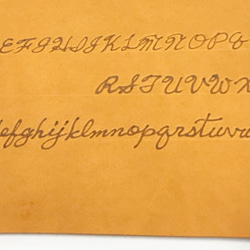 EFGHIJKLMNOPQ
RSTUVWX
efghijklmnopqrstuvw